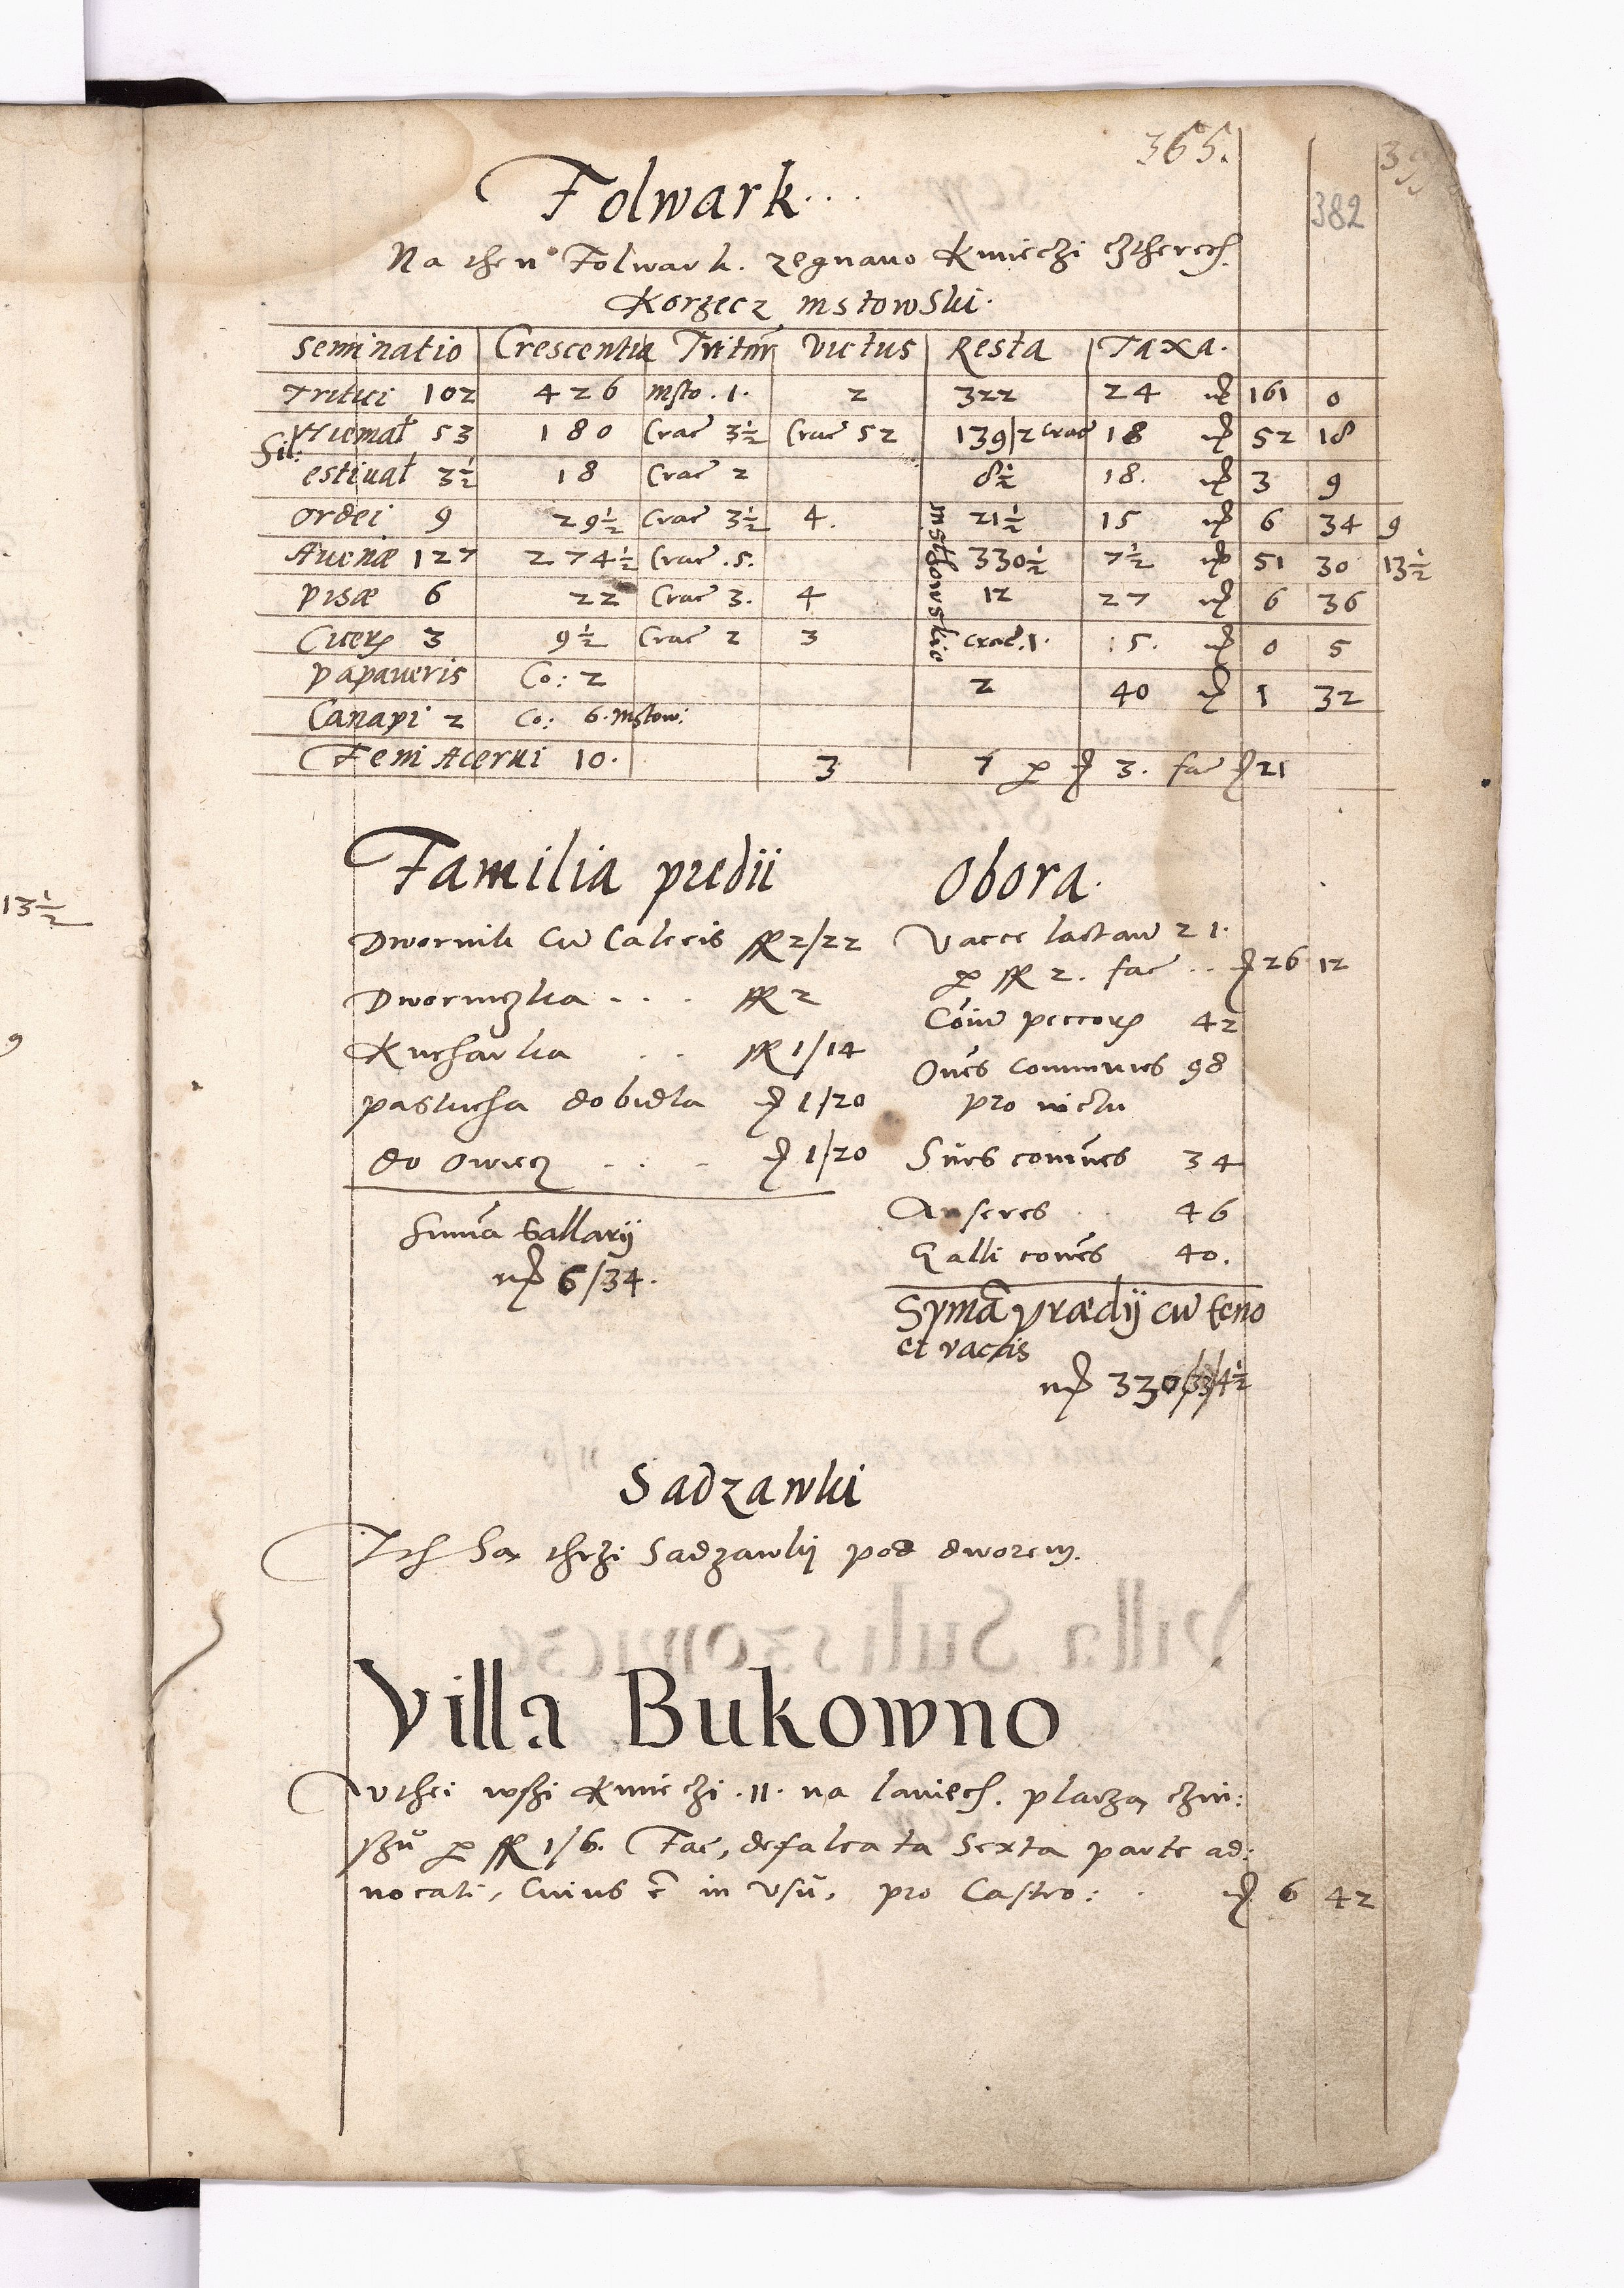 365.
382
Folwark...
Na then Folwark. zegnano Kmieczi cztherech.
Korzecz mstowski.
Seminatio Crescentia Tritur Victus Resta Taxa.
Tritici 102 426 Msto. 1. 2 322 24 161 0
Sil: Hiemal 53 180 Crac 3½ Crac 52 139/2 crac 18 52 18
estiual 3½ 18 Crac 2 8½ 18. 3 9
Ordei 9 29½ Crac 3½ 4. 21½ 15 6 34 9
Auenæ 127 274½ Crac .5. 330½ 7½ 51 30 13½
pisæ 6 22 Crac 3. 4 12 27 6 36
Cicer 3 9½ Crac 2 3 crac. 1. 15. 0 5
papaueris Co: 2 2 40 1 32
Canapi 2 Co: 6. Mstow:
Feni Acerui 10. 3 7 p 3. fac 21
Msthowskie
Familia predii
Dwornik Cu Calceis 2/22
Dworniczka . . . 2
Kucharka . . 1/14
pastucha do bidla 1/20
do owiecz . . . 1/20
Suma Sallarij
6/34.
Obora.
Vacce lactan 21.
p 2. fac .. 26 12
Coiu peccor 42
Oues communes 98
pro victu
Sues comunes 34
Anseres . . 46
Galli cones 40.
Syma prædij cu feno
et vaccis
330/33/4½
Sadzawki
Ich Sa thrzi Sadzawkij pod dworem.
Villa Bukowno
Vthei wszi Kmieczi .11. na laniech. placza czin:
szu p 1/6. Fac, defalcata Sexta parte ad:
uocati, Cuius e in Vsu, pro Castro: . 6 42
13½
9